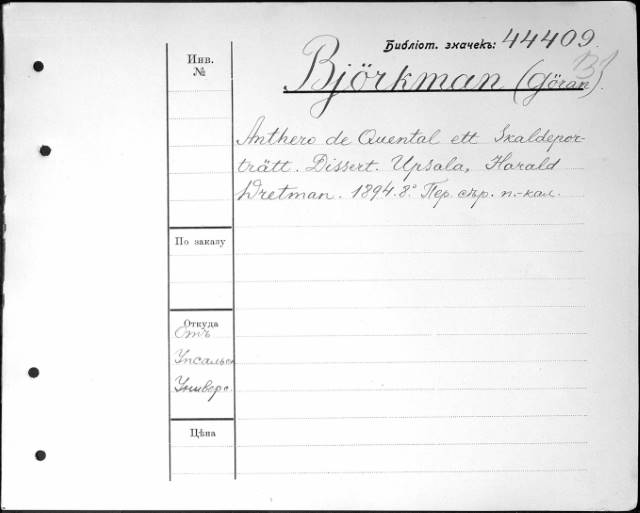 Библіот. значекъ: 44409.
Инв.
№
Björkman (Göran).
B
Anthero de Quental ett Skaldepor-
trätt. Dissert. Upsala, Harald
Wretman. 1894. 8° Пер. сѣр. п.-кал.
По заказу
Откуда
Отъ
Упсальск
Универс.
Цѣна